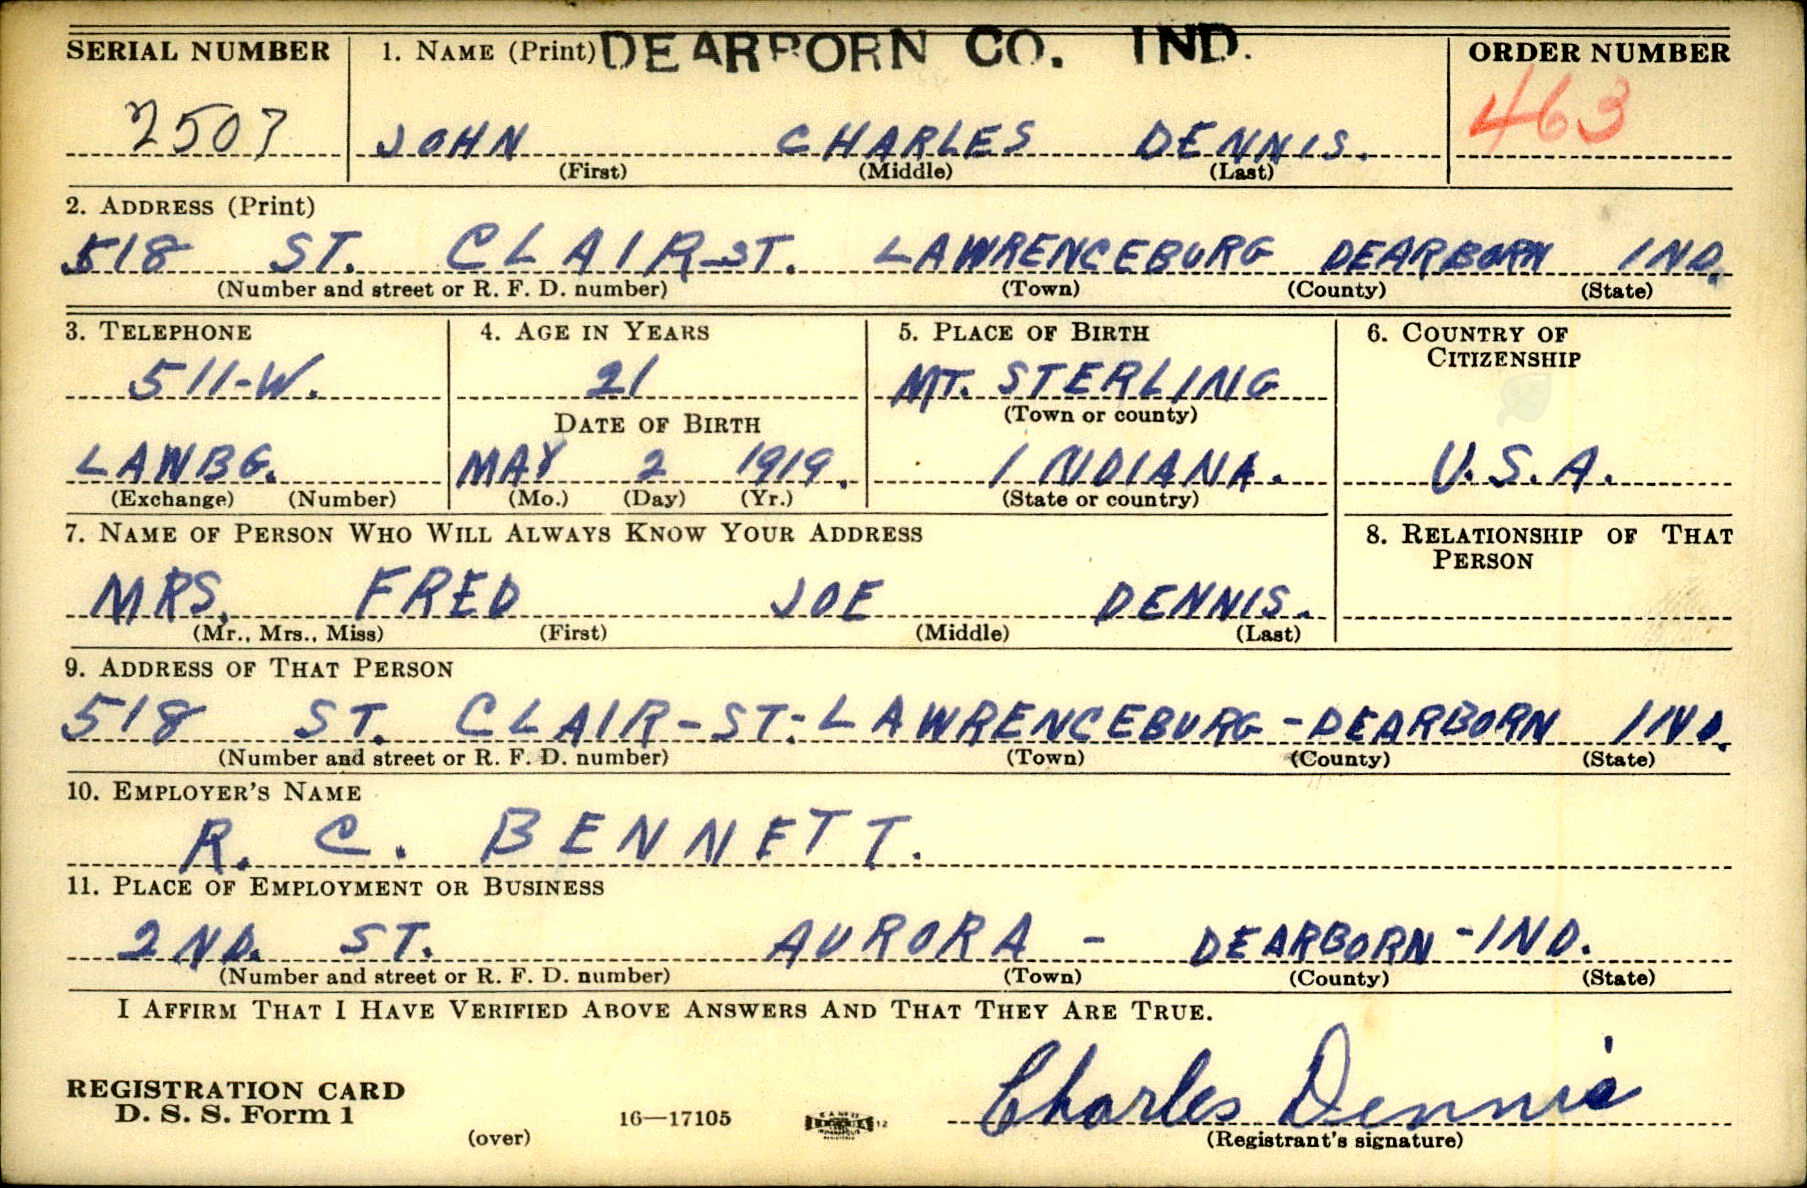 DEARBORN CO. IND.
SERIAL NUMBER 1. NAME (Print) ORDER NUMBER
2507 JOHN CHARLES DENNIS. 463
(First) (Middle) (Last)
2. ADDRESS (Print)
518 ST. CLAIR-ST. LAWRENCEBURG DEARBORN IND.
(Number and street or R. F. D. number) (Town) (County) (State)
3. TELEPHONE 4. AGE IN YEARS 5. PLACE OF BIRTH 6. COUNTRY OF
CITIZENSHIP
511-W. 21 MT. STERLING
DATE OF BIRTH (Town or county)
LAWBG. MAY 2 1919. INDIANA. U.S.A.
(Exchange) (Number) (Mo.) (Day) (Yr.) (State or country)
7. NAME OF PERSON WHO WILL ALWAYS KNOW YOUR ADDRESS 8. RELATIONSHIP OF THAT
PERSON
MRS. FRED JOE DENNIS.
(Mr., Mrs., Miss) (First) (Middle) (Last)
9. ADDRESS OF THAT PERSON
518 ST. CLAIR-ST.-LAWRENCEBURG-DEARBORN IND.
(Number and street or R. F. D. number) (Town) (County) (State)
10. EMPLOYER'S NAME
R. C. BENNETT.
11. PLACE OF EMPLOYMENT OR BUSINESS
2ND. ST. AURORA - DEARBORN-IND.
(Number and street or R. F. D. number) (Town) (County) (State)
I AFFIRM THAT I HAVE VERIFIED ABOVE ANSWERS AND THAT THEY ARE TRUE.
REGISTRATION CARD
D. S. S. Form 1 16—17105 12 Charles Dennis
(over) (Registrant's signature)